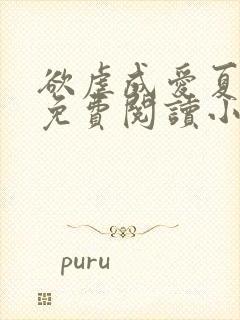 欲虐成愛夏
免費閱讀小
puru